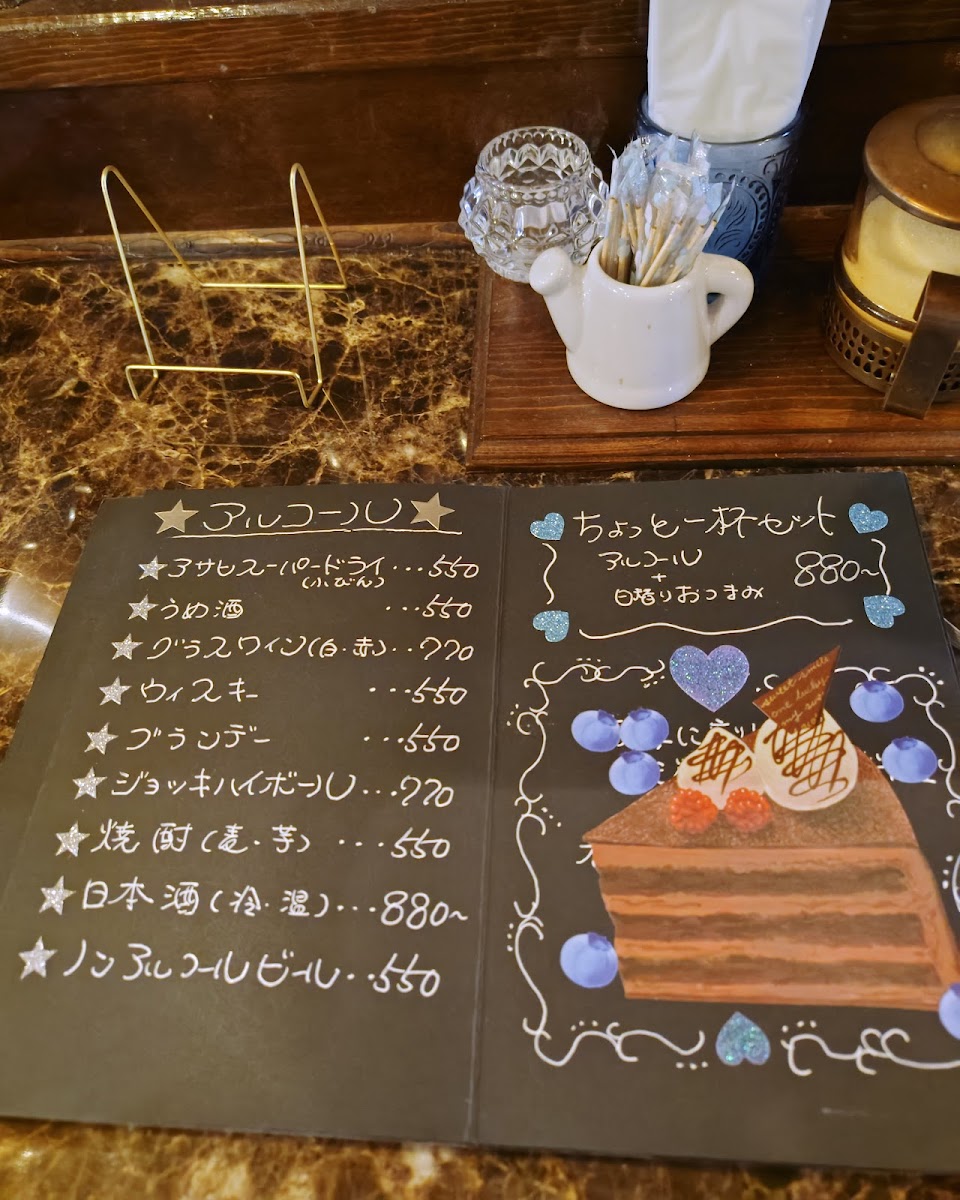 アルコール
アサヒスーパードライ…550
(小びん)
うめ酒 …550
グラスワイン(白・赤)‥770
ウィスキー …550
ブランデー …550
ジョッキハイボール…770
焼酎(麦・芋) …550
日本酒(冷・温)…880~
ノンアルコールビール‥550
ちょっと一杯セット
アルコール
+
日替りおつまみ
880~